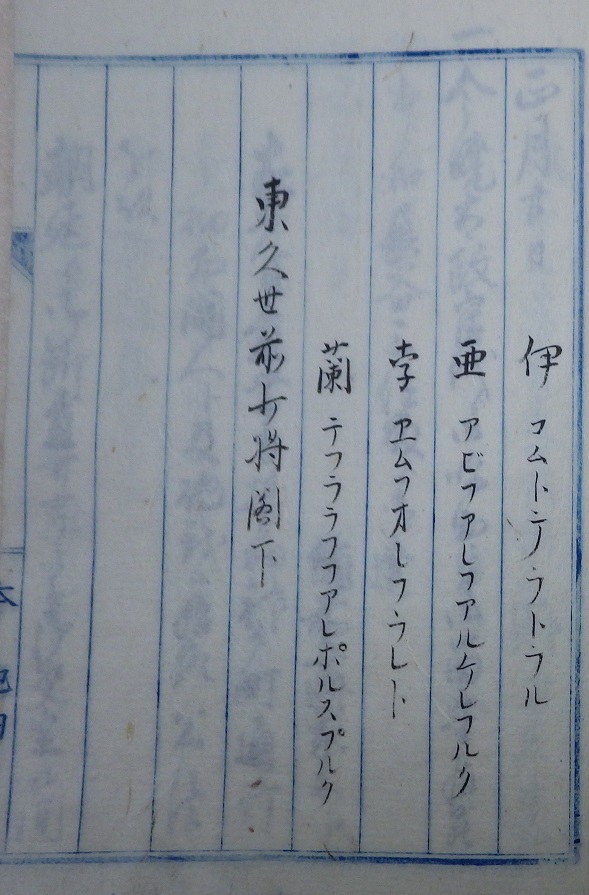 伊 コムトデラトラル
亜 アビフアレフアルケレフルク
孛 エムフオレフラレト
蘭 テフララフフアレポルスプルク
東久世前少将閣下